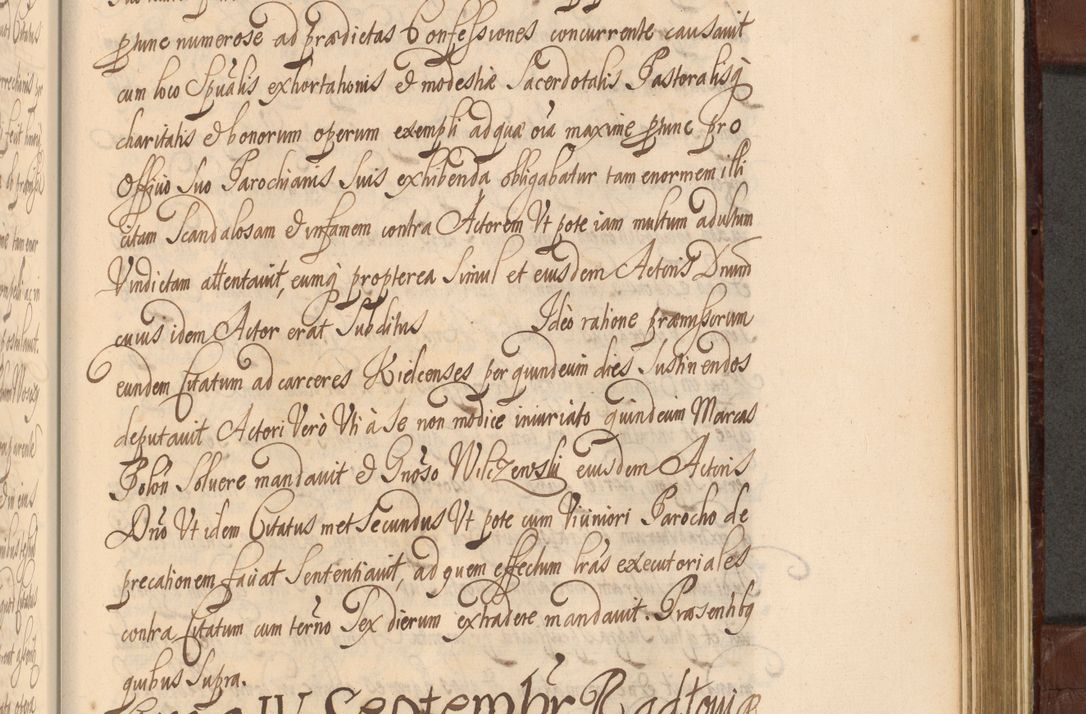 ptune numerose ad prædictas Confessiones concurrente causavit
cum loco Spũalis exhortationis & modestiæ Sacerdotalis Pastoralisq
charitatis & bonorum operum exempli ad quæ oĩa maxime ptune pro
Officio Suo Parochianis Suis exhibenda obligabatur tam enormem illi
citam Scandalosam & infamem contra Actorem Ut pote iam multum adultum
Vindictam attentavit, eumq propterea Simul et eiusdem Actoris Dnum
cuius idem Actor erat Subditus Ideò ratione præmyssorum
eundem Citatum ad carceres Kielcenses per quindecim dies Sustinendos
deputavit Actori Verò Uti à Se non modice iniuriato quindecim Marcas
Polon Solvere mandavit & Gnõso Wilczewski eiusdem Actoris
Dnõ Ut idem Citatus met Secundus Ut pote cum Viiniori Parocho de
precationem faciat Sententiavit, ad quem effectum lras executoriales
contra Citatum cum terno Sex dierum extradere mandavit. Præsentibq
quibus Supra.
IV Septembr̃ Radłoviæ